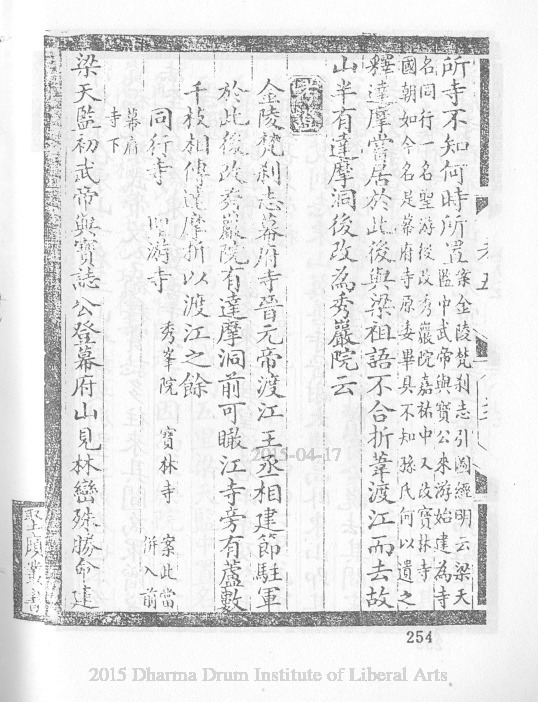 所寺不知何時所置案金陵梵刹志引圖經明云梁天
監中武帝與寶公來游始建為寺
名同行一名聖游後改秀巖院嘉祐中又改寶林寺
國朝如今名是幕府寺原委畢具不知孫氏何以遺之
釋達摩嘗居於此後與梁祖語不合折葦渡江而去故
山半有達摩洞後改為秀巖院云
金陵梵刹志幕府寺晉元帝渡江王丞相建節駐軍
於此後改秀巖院有達摩洞前可瞰江寺旁有蘆數
千枝相傳達摩折以渡江之餘
同行寺 聖游寺 秀峯院 寶林寺 案此當
併入前
幕府
寺下
梁天監初武帝與寶誌公登幕府山見林巒殊勝命建
聖願叢書
254
2015-04-17
2015 Dharma Drum Institute of Liberal Arts